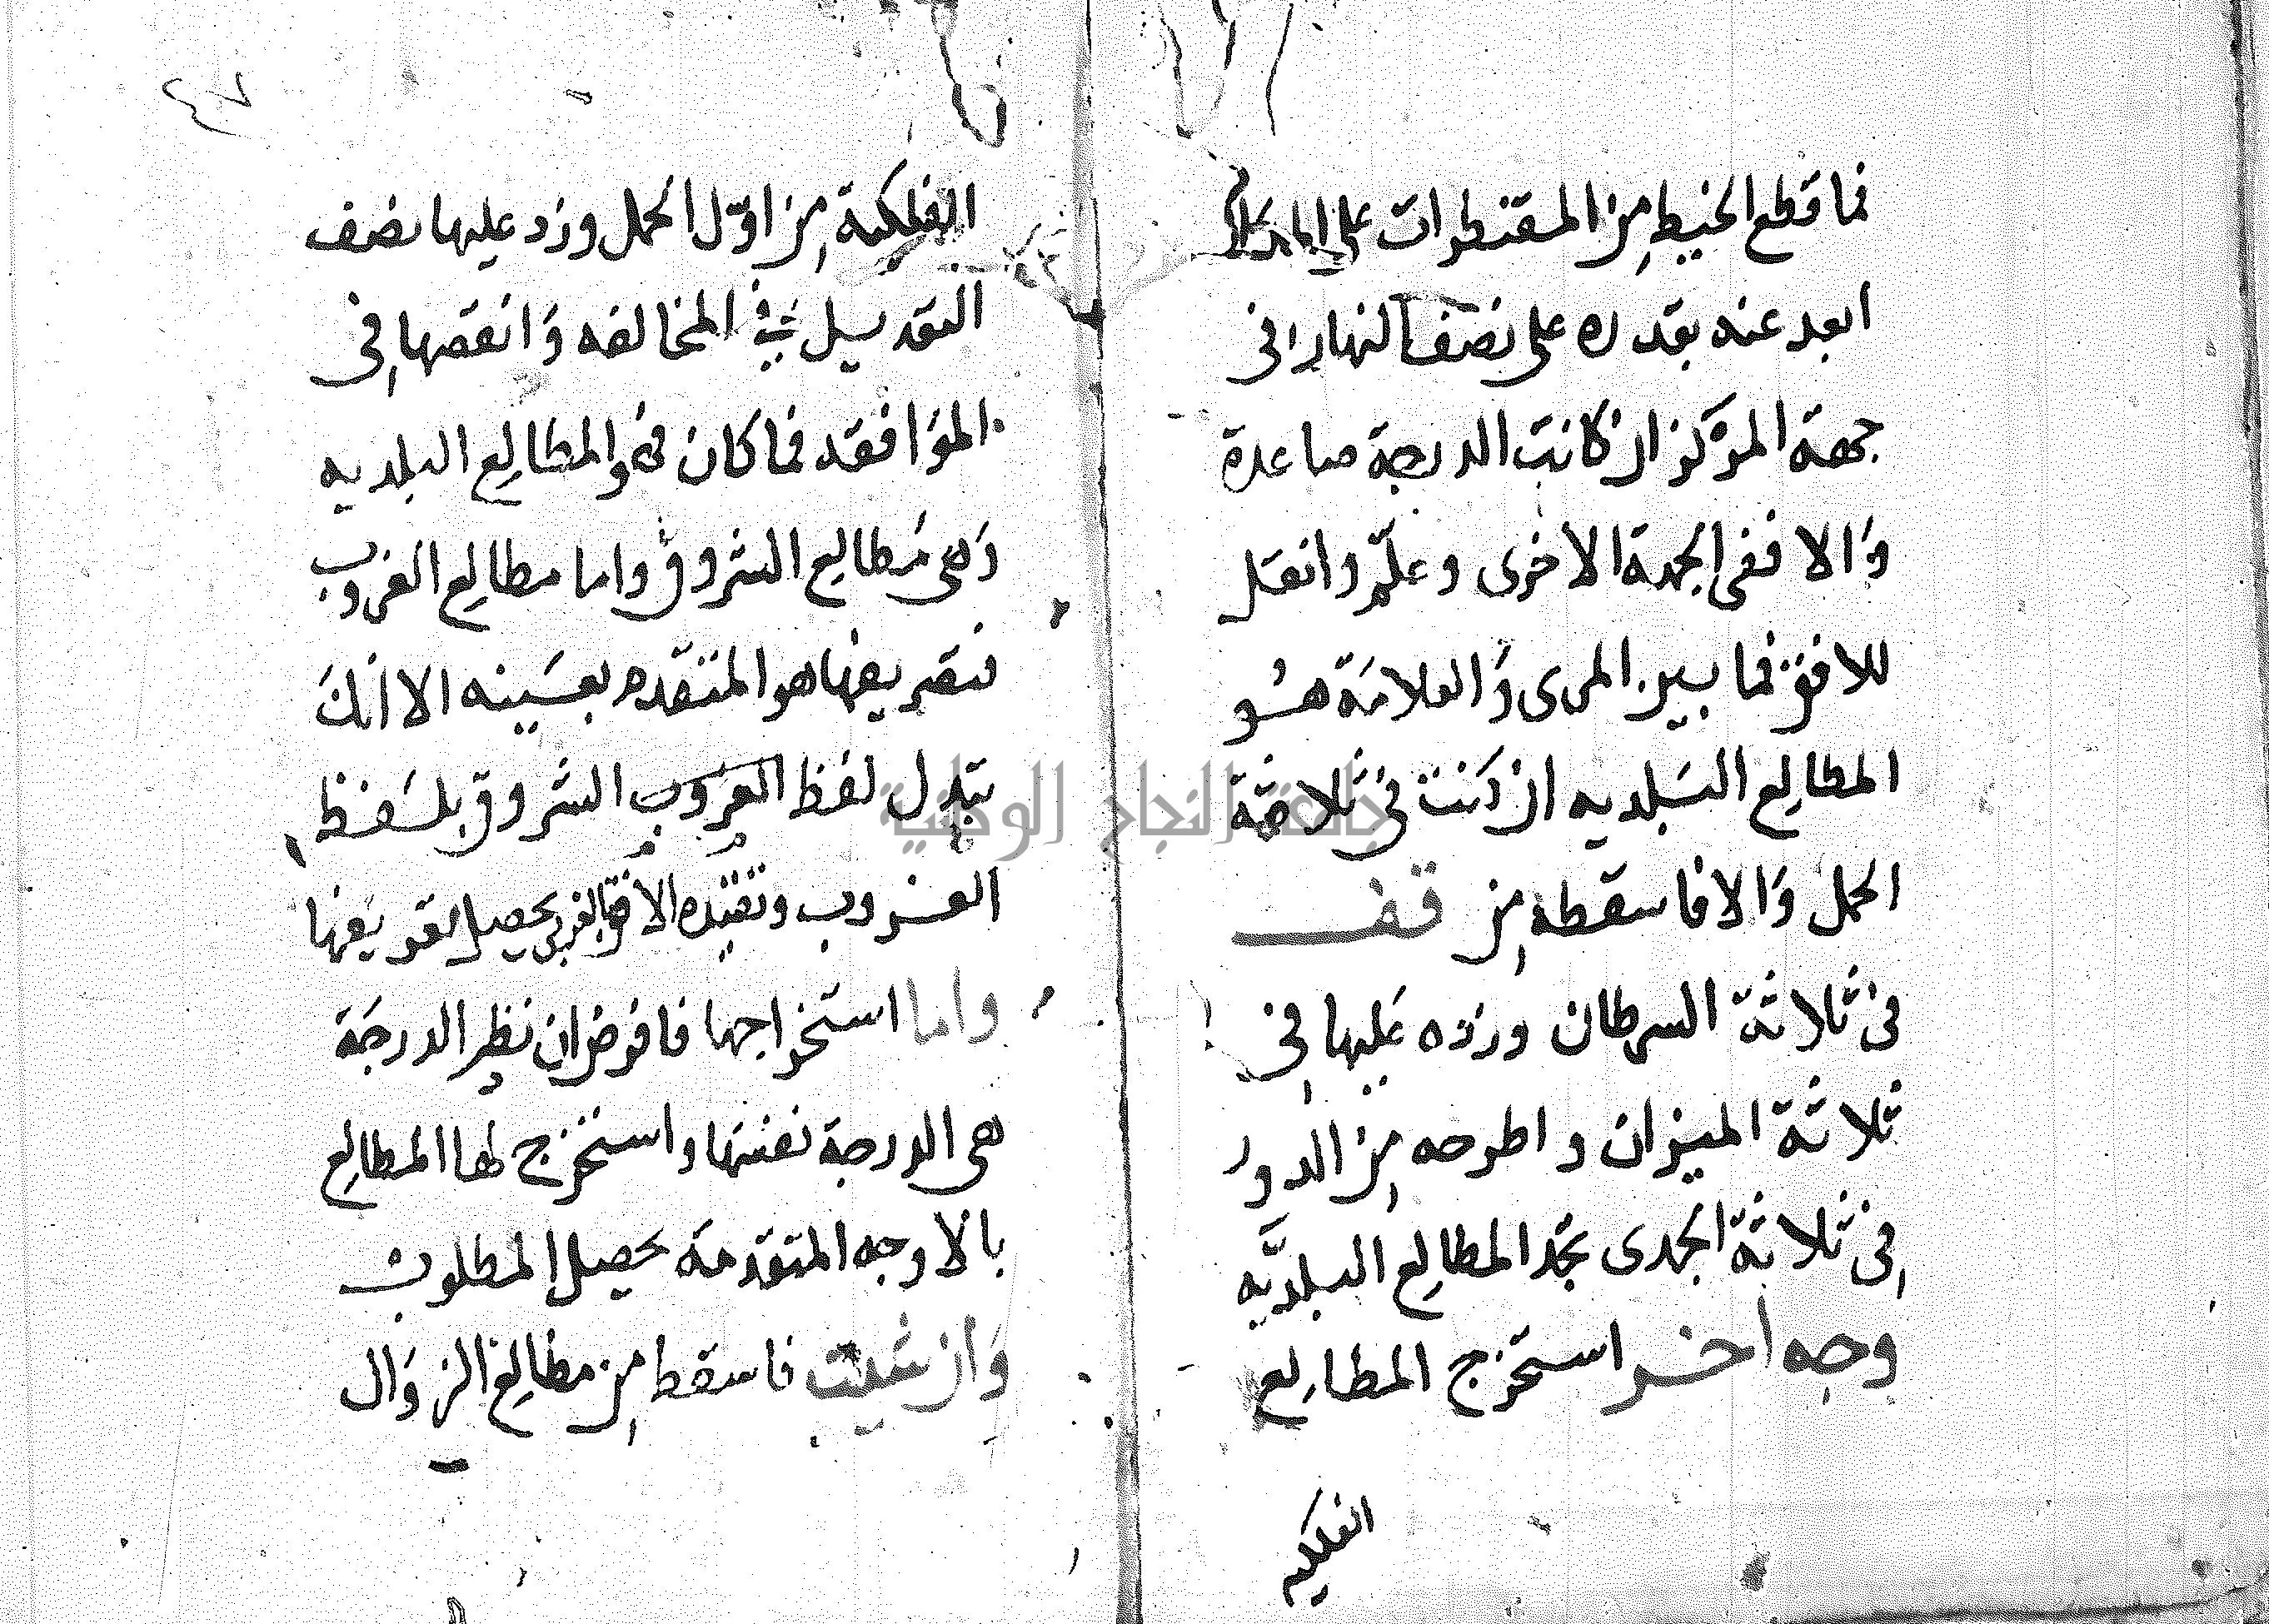 فما قطع الخيط من المقنطرات على المدار
ابعد عنه بقدره على نصف النهار في
جهة المركز ان كانت الدرجة صاعدة
والا ففي الجهة الاخرى وعلّم وانقل
للافق فما بين المرى والعلامة هو
المطالع البلديه ان كنت في ثلاثة
الحمل والا فاسقطه من قف
في ثلاثة السرطان وزده عليها في
ثلاثة الميزان واطرحه من الدور
في ثلاثة الجدى تجد المطالع البلديّه
وجه اخر استخرج المطالع
الفلكيه
٤٧
الفلكية من اوّل الحمل وزد عليها نصف
التعديل في المخالفه وانقصها في
الموافقه فما كان فهو المطالع البلديه
وهي مطالع الشروق واما مطالع الغروب
فتعريفها هو المتقدم بعينه الا انك
تبدل لفظ الغروب الشروق بلفظ
الغروب وتقيده الافق بالغربي يحصل تعريفها
واما استخراجها فافرض ان نظير الدرجة
هى الدرجة نفسها واستخرج لها المطالع
بالاوجه المتقدمة يحصل المطلوب
وان شيت فاسقط من مطالع الزوال
جامعة النجاح الوطنية